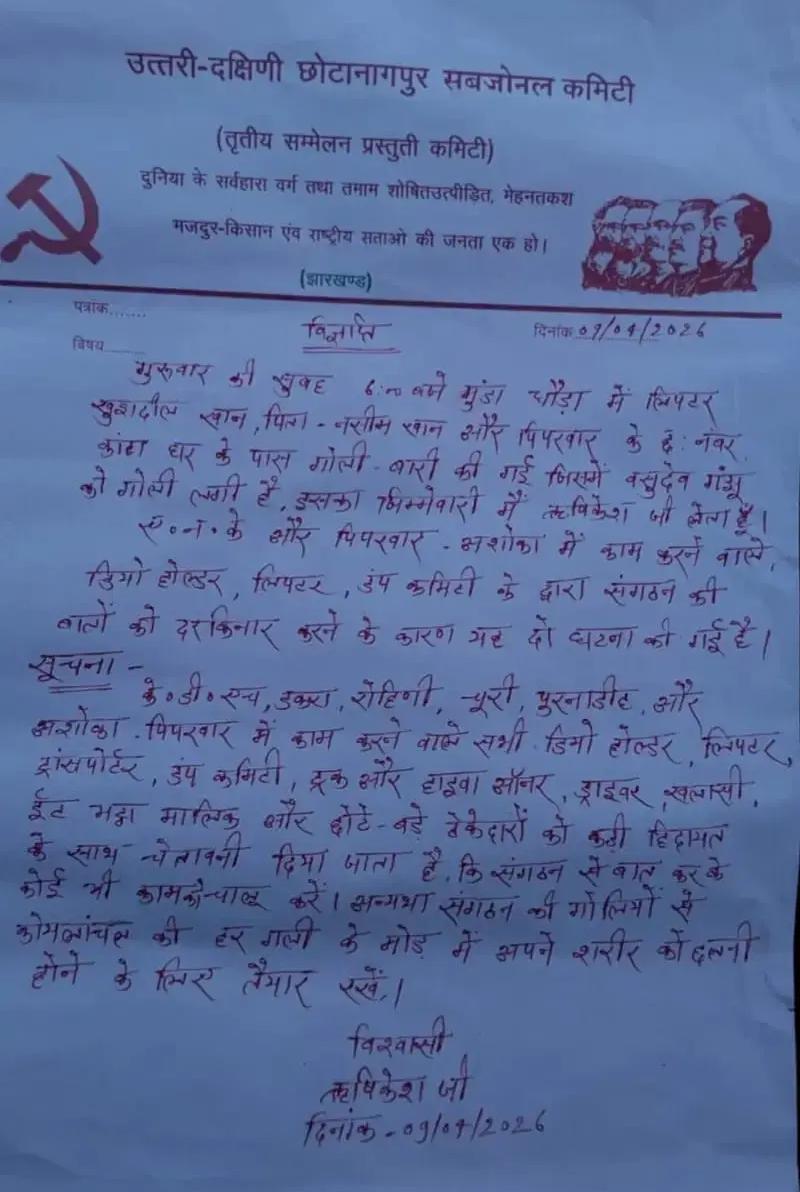 उत्तरी-दक्षिणी छोटानागपुर सबजोनल कमिटी
(तृतीय सम्मेलन प्रस्तुती कमिटी)
दुनिया के सर्वहारा वर्ग तथा तमाम शोषितउत्पीड़ित, मेहनतकश
मजदुर-किसान एंव राष्ट्रीय सताओ की जनता एक हो।
(झारखण्ड)
पत्रांक.......
विज्ञप्ति
दिनांक 09/04/2026
विषय.......
गुरूवार की सुबह 6:00 बजे मुंडा धौड़ा में लिपटर
खुशदील खान, पिता - नसीम खान और पिपरवार के छ: नंबर
कांटा घर के पास गोली-बारी की गई जिसमें वसुदेव गंझू
को गोली लगी है, इसका जिम्मेवारी मैं ऋषिकेश जी लेता हूँ।
ए०न०के और पिपरवार - अशोका में काम करने वाले,
डियो होल्डर, लिपटर, डंप कमिटी के द्वारा संगठन की
बातों को दरकिनार करने के कारण यह दो घटना की गई है।
सूचना -
के०डी०एच, डकरा, रोहिणी, चूरी, पुरनाडीह, और
अशोका-पिपरवार में काम करने वाले सभी डियो होल्डर, लिपटर,
ट्रांसपोर्टर, डंप कमिटी, ट्रक और हाइवा ऑनर, ड्राइवर, खलासी,
ईट भट्ठा मालिक और छोटे-बड़े ठेकेदारों को कड़ी हिदायत
के साथ चेतावनी दिया जाता है, कि संगठन से बात कर के
कोई भी काम को चालू करें। अन्यथा संगठन की गोलियों से
कोयलांचल की हर गली के मोड़ में अपने शरीर को छलनी
होने के लिए तैयार रखें,।
विश्वासी
ऋषिकेश जी
दिनांक - 09/04/2026